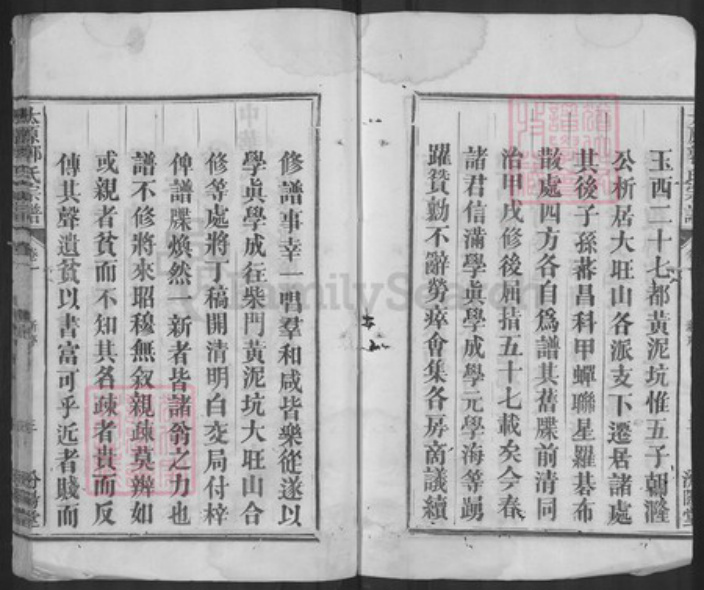 玉西二十七都黃泥坑惟五子朝隆
公析居大旺山各派支下遷居諸處
其後子孫蕃昌科甲蟬聯星羅碁布
散處四方各自為譜其舊牒前清同
治甲戌修後屈指五十七載矣今春
諸君信滿學眞學成學元學海等踴
躍贊勷不辭勞瘁會集各房商議續
修譜事幸一唱羣和咸皆樂從遂以
學眞學成在柴門黃泥坑大旺山合
修等處將丁稿開清明白交局付梓
俾譜牒煥然一新者皆諸翁之力也
譜不修將來昭穆無叙親疎莫辨如
或親者貧而不知其名疎者貴而反
傳其聲遺貧以書富可乎近者賤而
太原郭氏宗譜
卷一
汾陽堂
FamilySearch